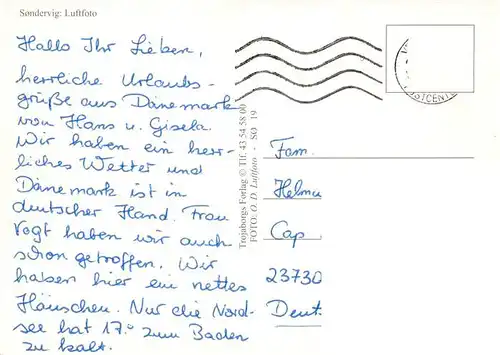 Søndervig: Luftfoto
Hallo Ihr Lieben,
herrliche Urlaubs-
grüße aus Dänemark
von Hans u. Gisela.
Wir haben ein herr-
liches Wetter und
Dänemark ist in
deutscher Hand. Frau
Vogt haben wir auch
schon getroffen. Wir
haben hier ein nettes
Häuschen. Nur die Nord-
see hat 17° zum Baden
zu kalt.
Trojaborgs Forlag © Tlf. 43 54 58 00
FOTO: O. D. Luftfoto - SØ 19
POSTCENT
Fam.
Helmu
Cap
23730
Deut